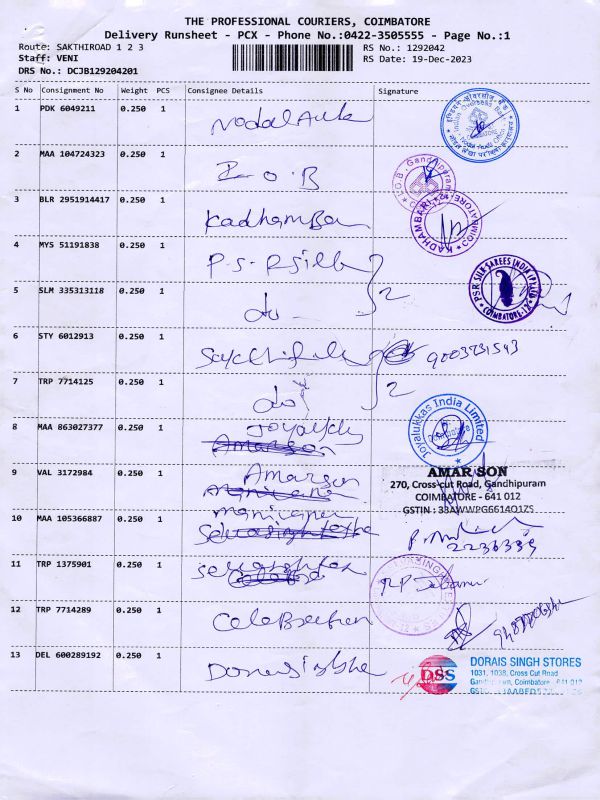 THE PROFESSIONAL COURIERS, COIMBATORE
Delivery Runsheet - PCX - Phone No.:0422-3505555 - Page No.:1
Route: SAKTHIROAD 1 2 3 RS No.: 1292042
Staff: VENI RS Date: 19-Dec-2023
DRS No.: DCJB129204201
S No Consignment No Weight PCS Consignee Details Signature
1 PDK 6049211 0.250 1 Nodal Aude
Indian Overseas Bank
2 MAA 104724323 0.250 1 I.O.B
3 BLR 2951914417 0.250 1 Kadhamban
KADHAMBARI COIMBATORE
4 MYS 51191838 0.250 1 P.S.R Silk
PSR SILK SAREES INDIA (P) LTD
COIMBATORE-12
5 SLM 335313118 0.250 1 do - 2
6 STY 6012913 0.250 1
7 TRP 7714125 0.250 1 do 2
8 MAA 863027377 0.250 1 Joyalukks
Amarson
Joyalukkas India Limited
9 VAL 3172984 0.250 1 Amarson
AMARSON
270, Cross cut Road, Gandhipuram
COIMBATORE - 641 012
GSTIN : 33AWWPG6614Q1ZS
10 MAA 105366887 0.250 1
11 TRP 1375901 0.250 1
12 TRP 7714289 0.250 1
13 DEL 600289192 0.250 1
DSS
DORAIS SINGH STORES
1031, 1038, Cross Cut Road
Gandhipuram, Coimbatore - 641 012